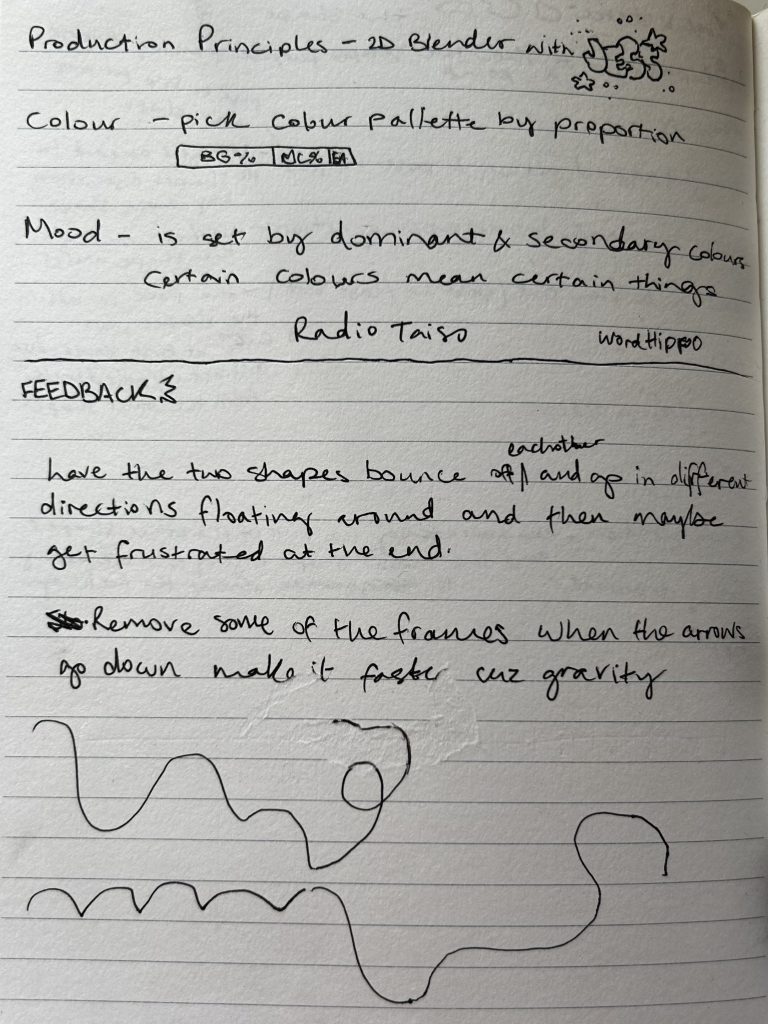 Production Principles - 2D Blender with JESS
Colour - pick colour pallette by proportion
BG% MC% EA
Mood - is set by dominant & secondary colours
Certain colours mean certain things
Radio Taiso WordHippo
FEEDBACK
have the two shapes bounce off eachother and go in different
directions floating around and then maybe
get frustrated at the end.
Remove some of the frames when the arrows
go down make it faster cuz gravity